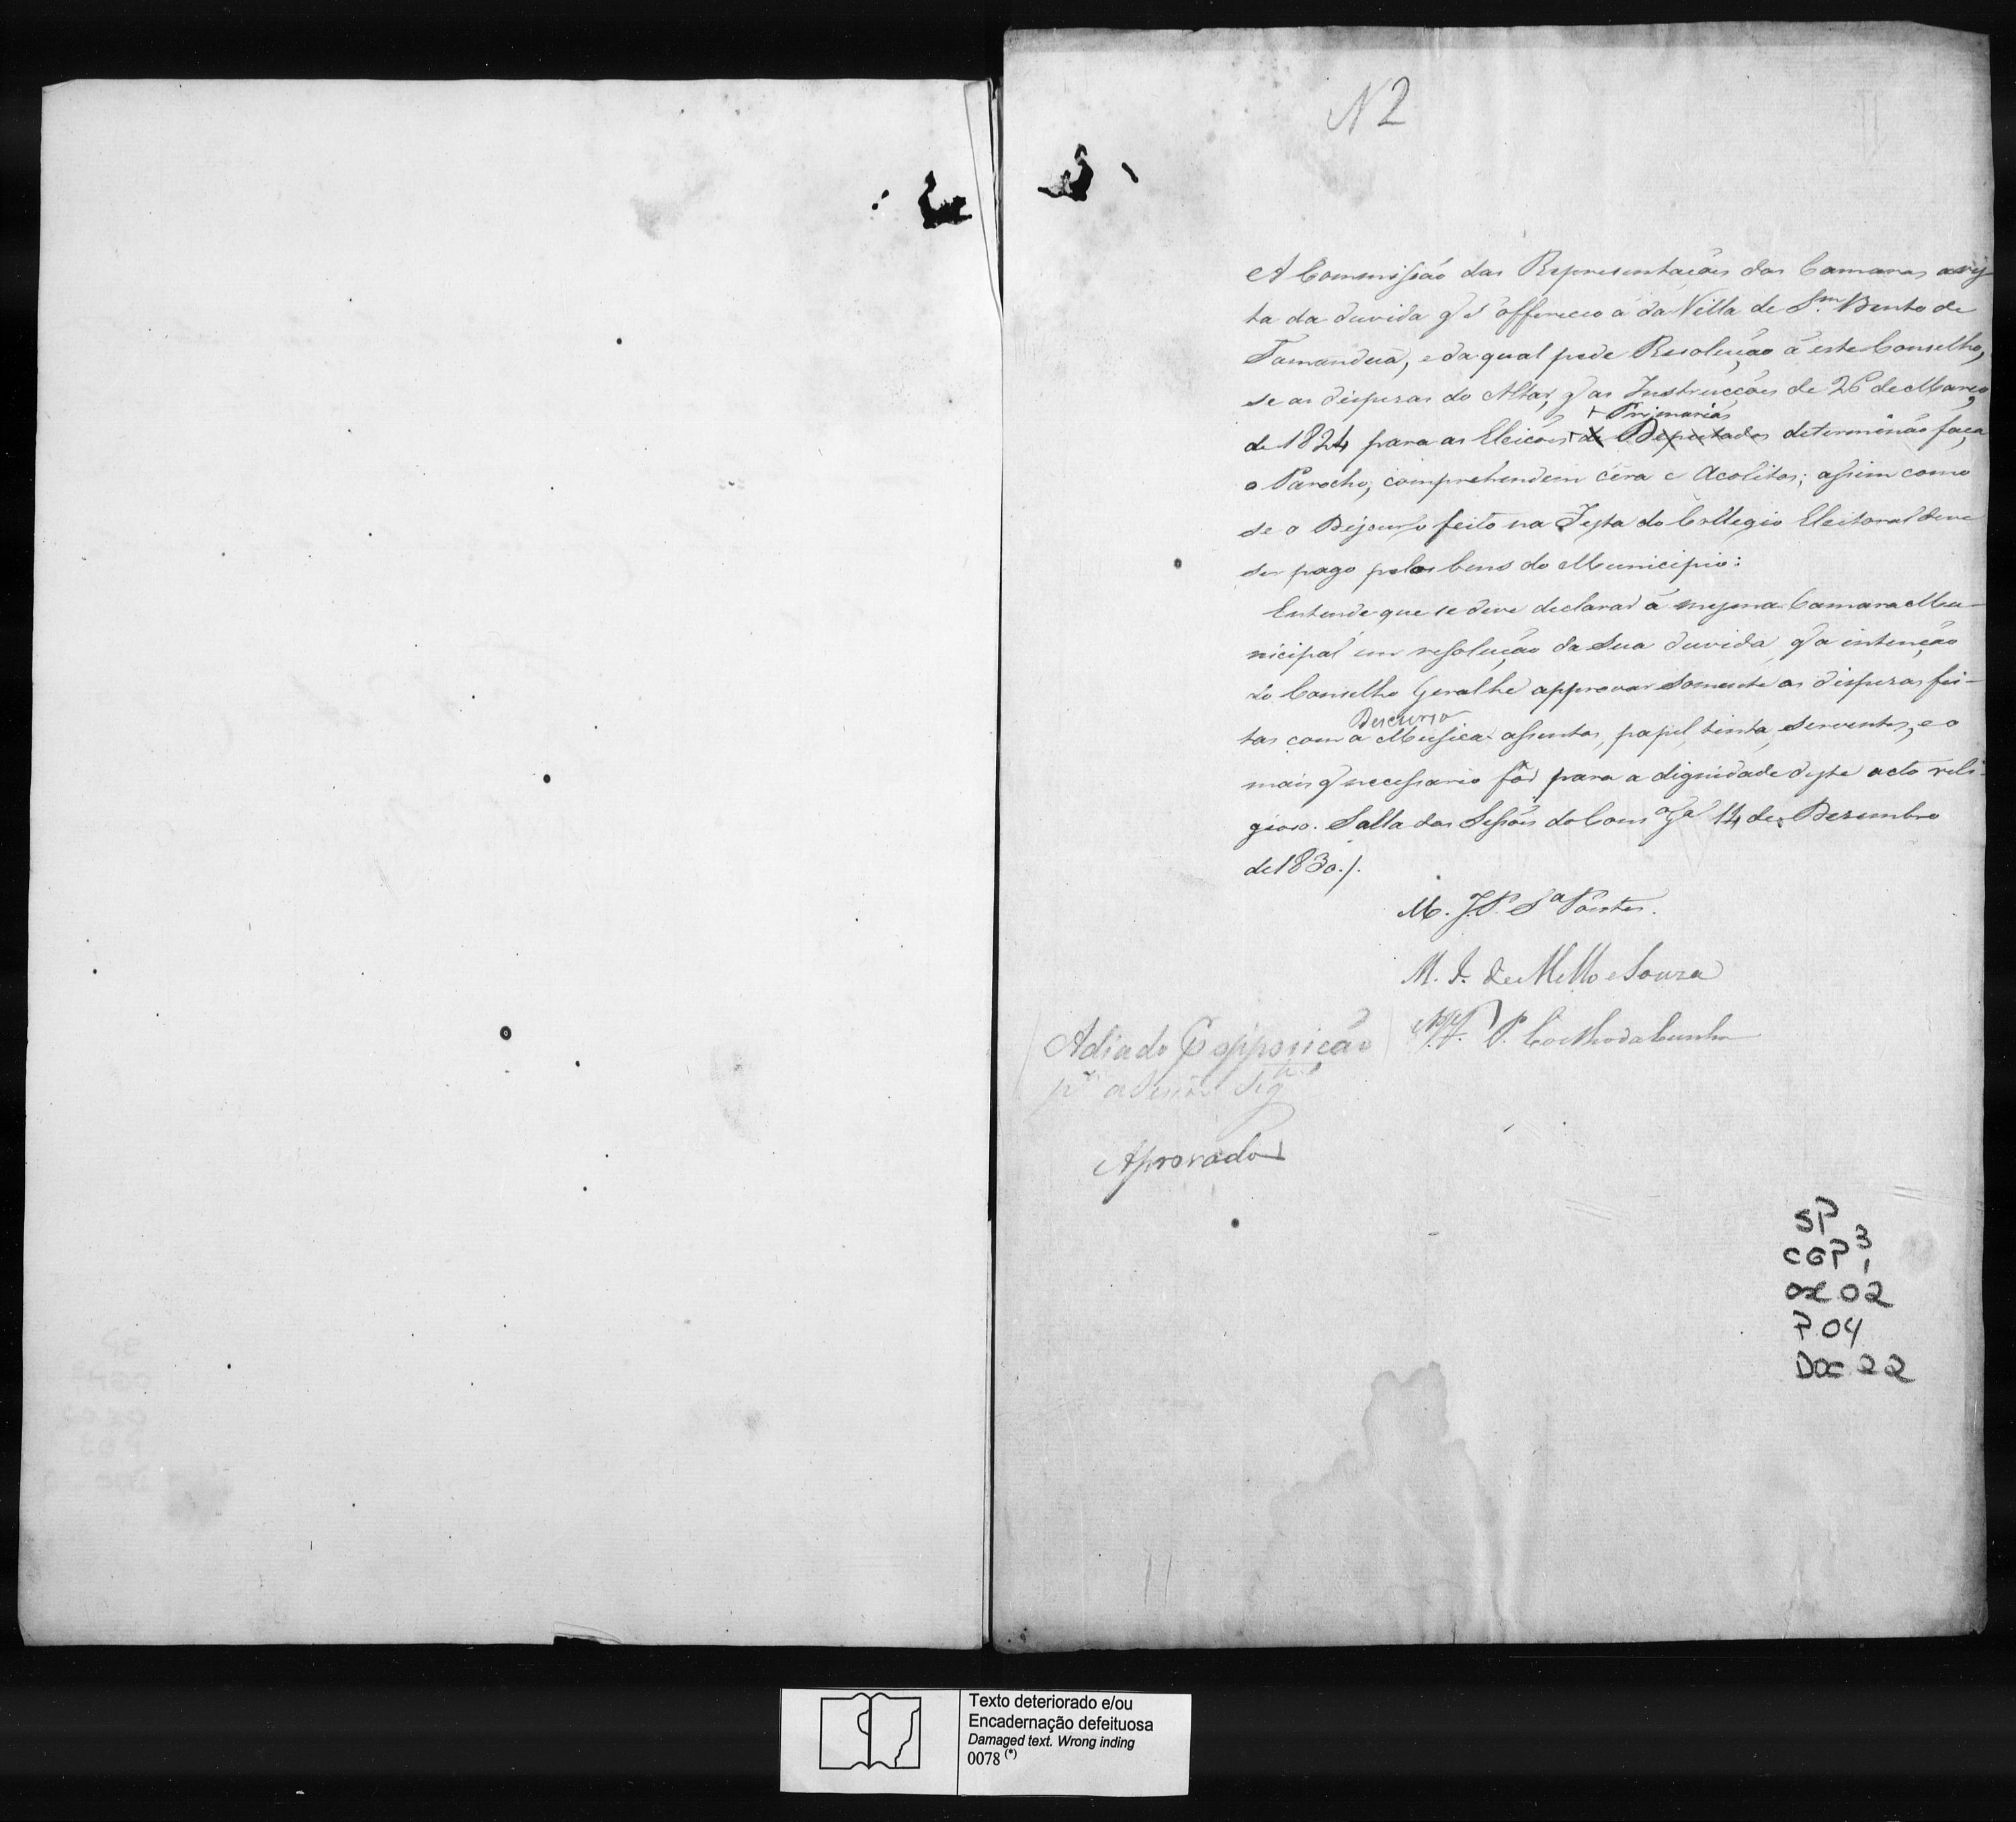 N 2
A Commissão das Representações das Camaras avis
ta da duvida q̃ s'offereceo á da Villa de S.m Bento de
Tamanduá, e da qual pede Resolução á este Conselho,
se as dispezas do Altar, q̃ as Instrucções de 26 de Março
+ Primarias
de 1824 para as Eleicões + de Deputados determinão faça
o Parocho, comprehendem cera e Acolitos; assim como
se o Discurso feito na Festa do Collegio Eleitoral deve
ser pago pelos bens do Municipio:
Entende que se deve declarar á mesma Camara Mu-
nicipal em resolução da sua duvida q̃ a intenção
do Conselho Geral he approvar somente as dispezas fei-
Discurso
tas com a Musica assentos, papel, tinta, serventes, e o
mais q̃ necessario fôr para a dignidade deste acto reli-
gioso. Salla das Sessões do Cons.o G.al 14 de Dezembro
de 1830./.
M. J. P. S.a Pontes.
M. I. de Mello e Souza
P. Coelho da Cunha
Adiado P opposicão
pa a sessão sig.te
Aprovado
SP
CGP 3
1
cx 02
P 04
Doc 22
Texto deteriorado e/ou
Encadernação defeituosa
Damaged text. Wrong inding
0078 (*)